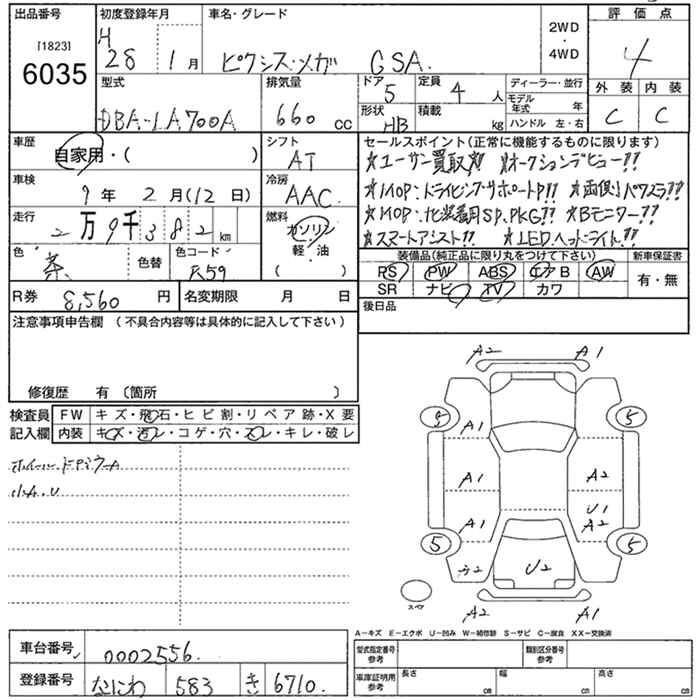 出品番号 初度登録年月 車名・グレード 2WD・4WD 評価点
[1823]
6035
H 28 1月 ピクシス・メガ GSA. 4
型式 排気量 ドア 定員 ディーラー・並行 外装 内装
DBA-LA700A 660 cc 5 4人 モデル年式 年 C C
形状 積載 ハンドル 左・右
HB kg
車歴 シフト セールスポイント(正常に機能するものに限ります)
自家用・( ) AT ★ユーザー買取!! ★オークションデビュー!!
車検 冷房 ★MOP:ドライビングサポートP!! ★両側パワスラ!!
9年 2月(12日) AAC ★MOP:化粧着用SP.PKG!! ★Bモニター!!
走行 燃料 ★スマートアシスト!! ★LEDヘッドライト!!
2万9千382km ガソリン
軽・油
( )
色 色替 色コード 装備品(純正品に限り丸をつけて下さい) 新車保証書
茶 R59 RS PW ABS エアB AW 有・無
SR ナビ TV カワ
R券 8,560円 名変期限 月 日 後日品
注意事項申告欄 (不具合内容等は具体的に記入して下さい)
修復歴 有 〔箇所 〕
検査員 FW キズ・飛石・ヒビ割・リペア跡・X要
記入欄 内装 キズ・汚レ・コゲ・穴・スレ・キレ・破レ
小A.U
A2 A1
5 5
A1
A1 A2
U1
A1 A2
5 5
U2
スペア
A2 A1
A-キズ E-エクボ U-凹み W-補修跡 S-サビ C-腐食 XX-交換済
車台番号 0002556. 型式指定番号 参考 類別区分番号 参考
登録番号 なにわ 583 き 6710. 車庫証明用 参考 長さ cm 幅 cm 高さ cm